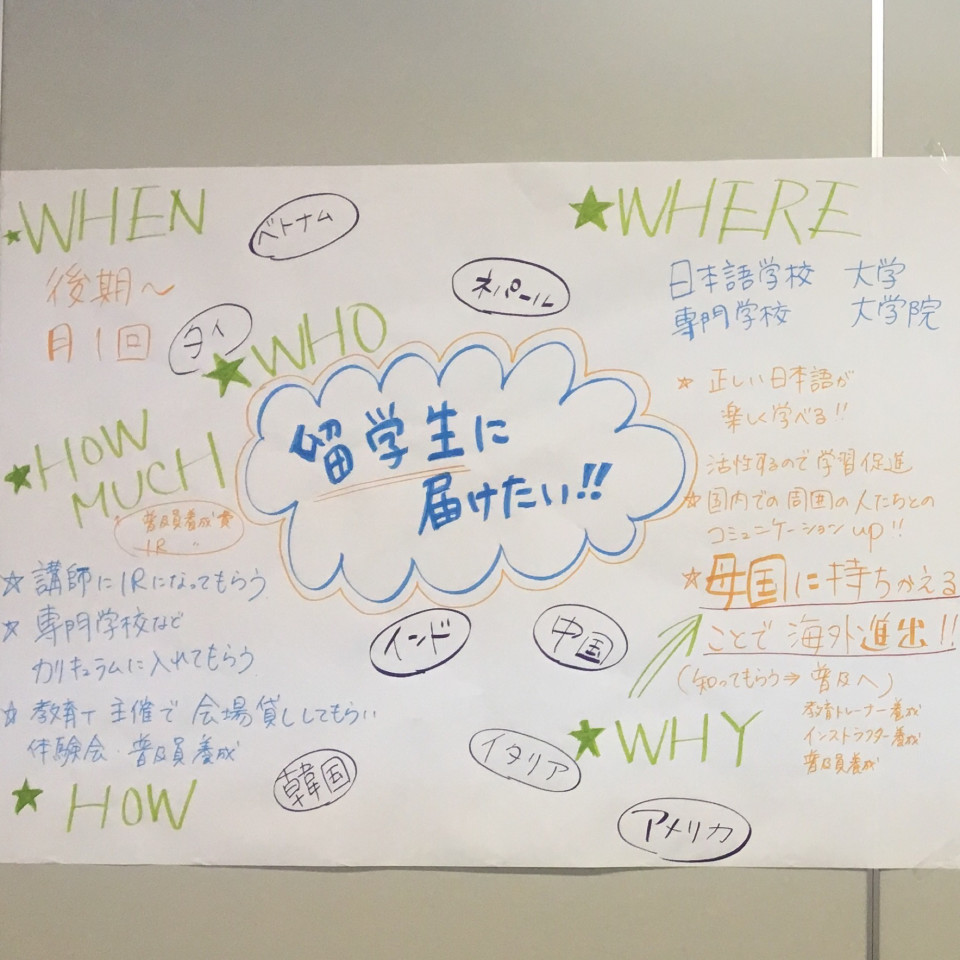 ★WHEN
後期～
月1回
ベトナム
ネパール
タイ
★WHO
★WHERE
日本語学校 大学
専門学校 大学院
留学生に
届けたい!!
★HOW
MUCH
普及員養成費
IR 〃
☆講師にIRになってもらう
☆専門学校など
カリキュラムに入れてもらう
☆教育T主催で会場貸ししてもらい
体験会・普及員養成
★HOW
☆正しい日本語が
楽しく学べる!!
活性するので学習促進
☆国内での周囲の人たちとの
コミュニケーションup!!
☆母国に持ちかえる
ことで海外進出!!
(知ってもらう⇒普及へ)
教育トレーナー養成
インストラクター養成
普及員養成
★WHY
インド
中国
韓国
イタリア
アメリカ